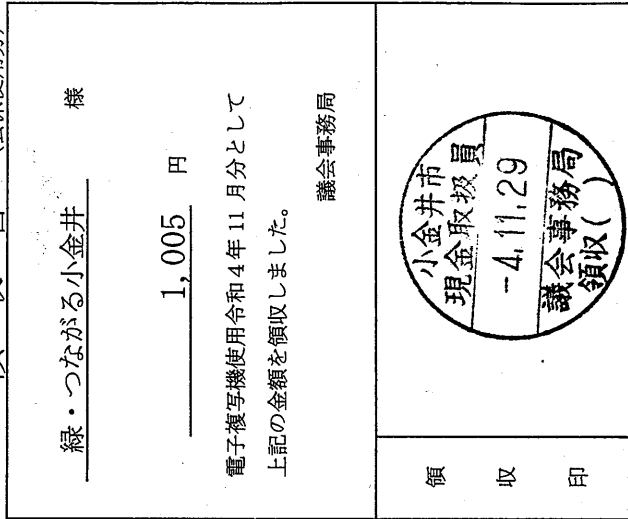 緑・つながる小金井 様
1,005 円
電子複写機使用令和4年11月分として
上記の金額を領収しました。
議会事務局
領収印
小金井市
現金取扱員
-4.11.29
議会事務局
領収( )